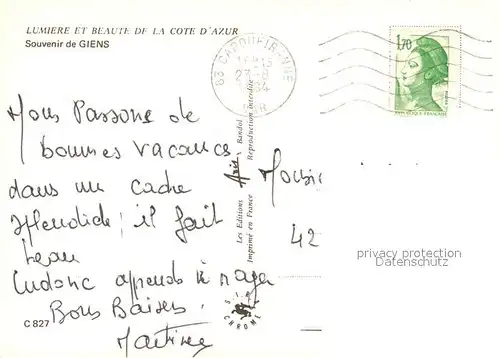 LUMIERE ET BEAUTE DE LA COTE D'AZUR
Souvenir de GIENS
83 CARQUEIRANNE
27-8
VAR
1,70
REPUBLIQUE FRANÇAISE
Nous Passons de
bonnes vacances
dans un cadre
splendide, il fait
beau
Ludovic apprends à nager
Bons Baisers.
Martine
C 827
Les Editions Aris Bandol
Imprimé en France Reproduction interdite
CHROME
42
privacy protection
Datenschutz